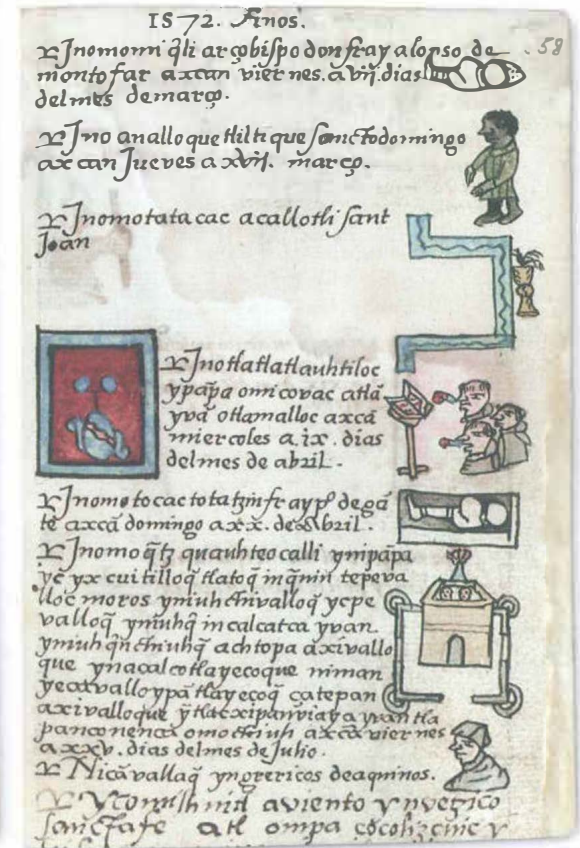 1572. Años.
58
Inomomiq̃li arçobispo don fray alonso de
montofar axcan viernes. a vij. dias
del mes de março.
Ino analloque tliltique sanctodomingo
axcan Jueves a xvij. março.
Inomotatacac acallotli sant
Joan
Inotlatlatlauhtiloc
ypãpa omicovac atlã
yvã otlamalloc axcã
miercoles a ix. dias
del mes de abril.
Inomotocac totatzin fray pº de gã
te axcã domingo a xx. de Abril.
Inomoq̃tz quauhteocalli ynipãpa
yc yxcuitilloq̃ tlatoq̃ in q̃nin tepeva
lloc moros yniuh chivalloq̃ ycpe
valloq̃ yniuhq̃ in calcatca yvan
yniuh q̃nchiuhq̃ achtopa axivallo
que ynacalcotlayecoque niman
yecavalloypã tlayecoq̃ çatepan
axivalloque
panconenca omochiuh axcã viernes
a xxv. dias del mes de Julio.
Nicã vallaq̃ yngrericos de aquinos.
aviento
sanctafe atl ompa